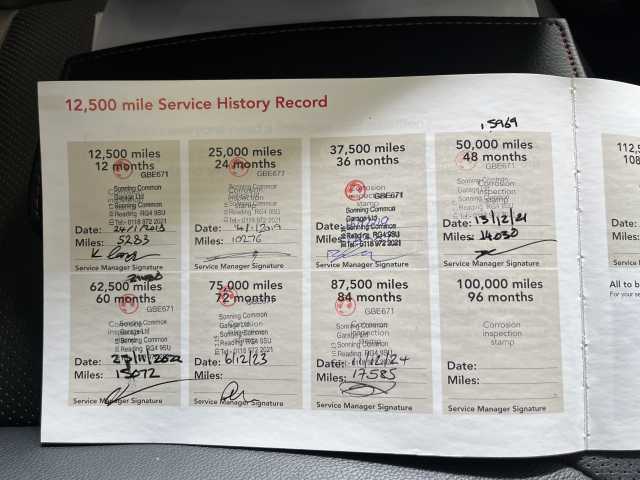 12,500 mile Service History Record
15969
12,500 miles
12 months
GBE671
Sonning Common
Garage Ltd
Reading RG4 9SU
Tel:- 0118 972 2021
Date: 24/1/2018
Miles: 5283
Service Manager Signature
25,000 miles
24 months
GBE671
Sonning Common
Garage Ltd
Reading RG4 9SU
Tel:- 0118 972 2021
Date: /1/2019
Miles: 10276
Service Manager Signature
37,500 miles
36 months
Corrosion
inspection
stamp
GBE671
Sonning Common
Garage Ltd
Reading RG4 9SU
Tel:- 0118 972 2021
Date:
Miles:
Service Manager Signature
50,000 miles
48 months
Corrosion
inspection
stamp
Sonning Common
Reading RG4 9SU
Tel:- 0118 972 2021
Date: 13/12/21
Miles: 14030
Service Manager Signature
112,5
108
All to b
For your se
62,500 miles
60 months
GBE671
Sonning Common
Garage Ltd
Reading RG4 9SU
Tel:- 0118 972 2021
Date: /11/2022
Miles: 15072
Service Manager Signature
75,000 miles
72 months
GBE671
Sonning Common
Garage Ltd
Reading RG4 9SU
Tel:- 0118 972 2021
Date: 6/12/23
Miles:
Service Manager Signature
87,500 miles
84 months
GBE671
Sonning Common
Garage Ltd
Reading RG4 9SU
Tel:- 0118 972 2021
Date: 11/12/24
Miles: 17585
Service Manager Signature
100,000 miles
96 months
Corrosion
inspection
stamp
Date:
Miles:
Service Manager Signature